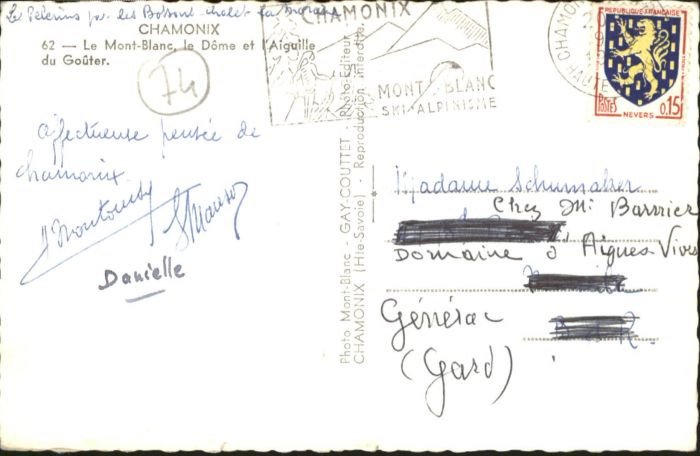 Le Pelerins par les Bossons chalet
CHAMONIX
62 — Le Mont-Blanc, le Dôme et l'Aiguille
du Goûter.
74
CHAMONIX
MONT-BLANC
SKI-ALPINISME
CHAMON
HAUTE
REPUBLIQUE FRANÇAISE
POSTES
0,15
NEVERS
affectueuse pensée de
chamonix.
Danielle
Photo Mont-Blanc - GAY-COUTTET - Photo-Editeur
CHAMONIX (Hte-Savoie) - Reproduction interdite
Madame Schumaker
Chez Mr Barnier
Domaine d'Aigues-Vives
Générac
(Gard)